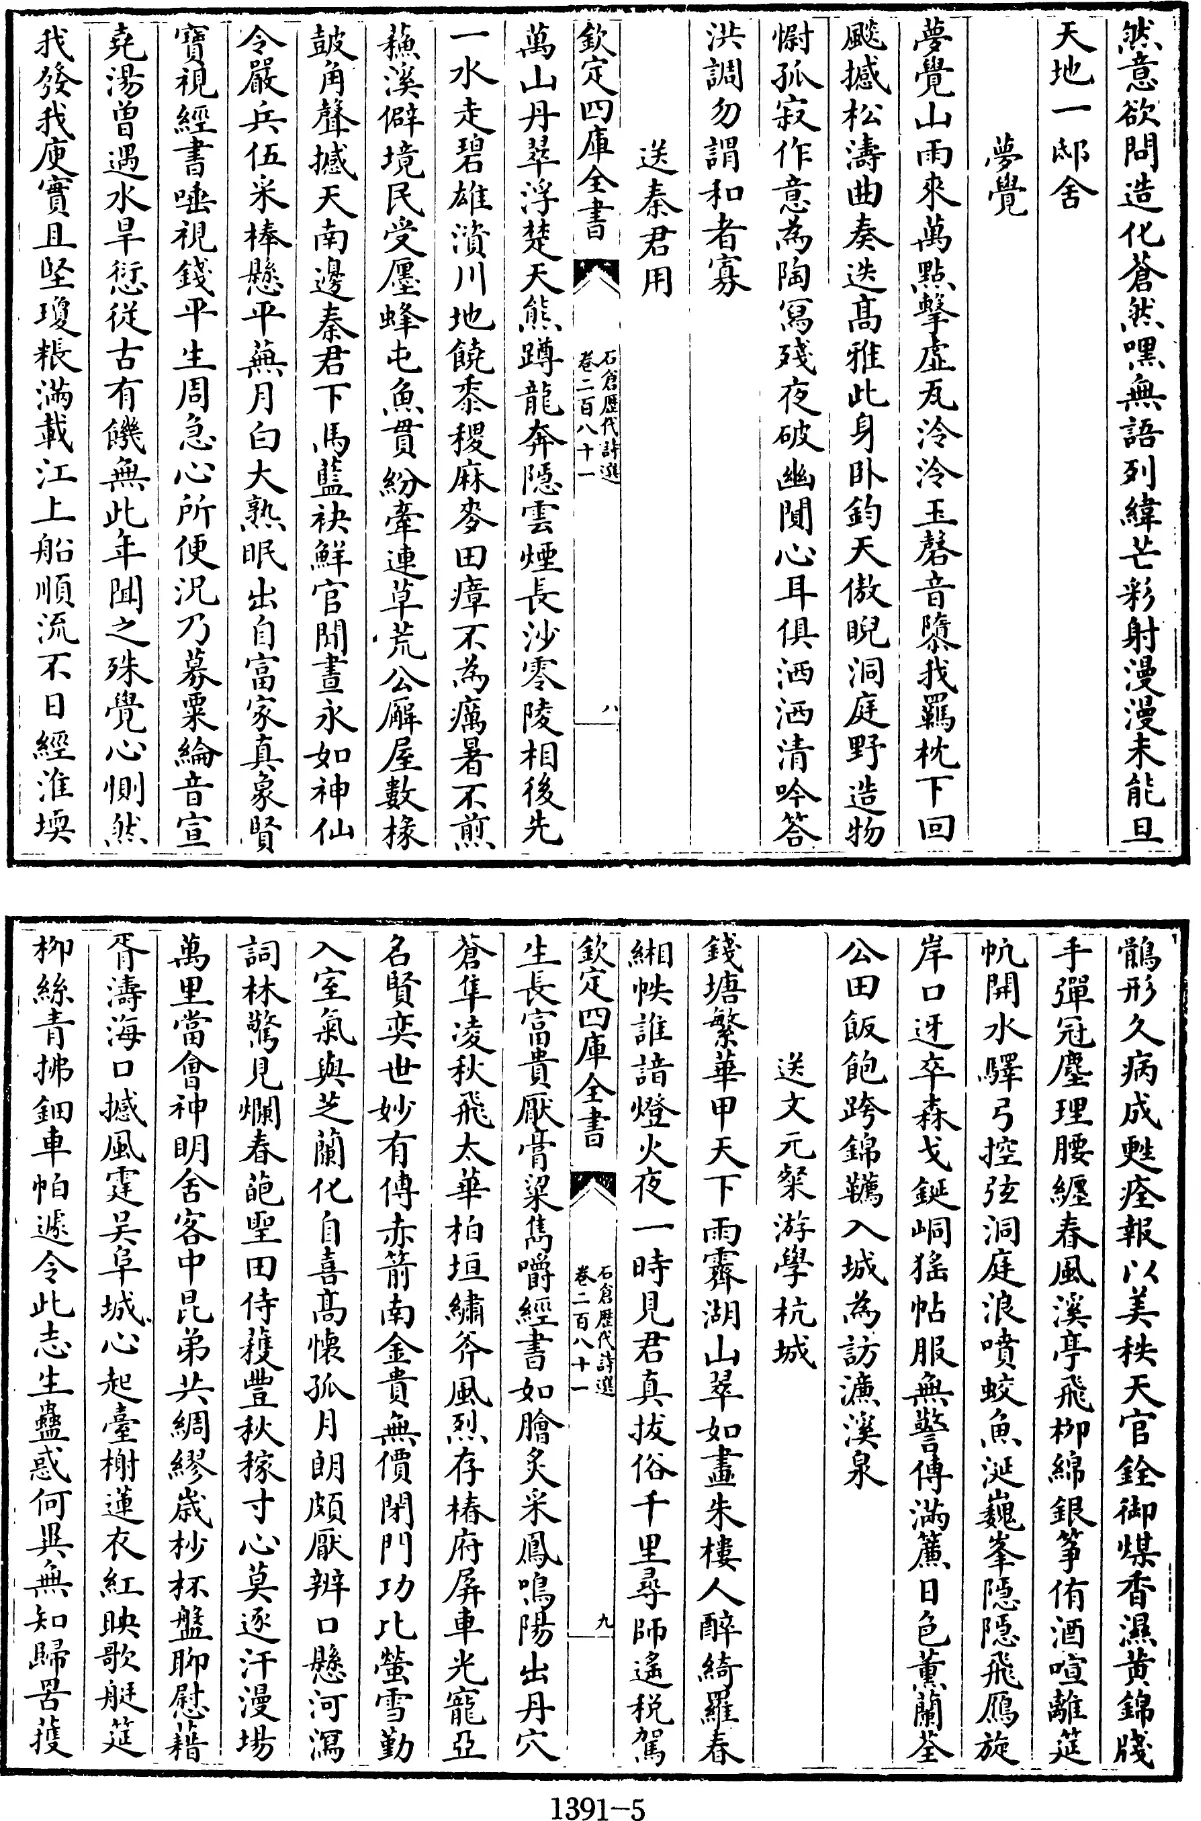 然意欲問造化蒼然嘿無語列緯芒彩射漫漫未能旦
天地一邸舍
夢覺
夢覺山雨來萬點擊虛瓦泠泠玉磬音隳我羈枕下回
飈撼松濤曲奏迭高雅此身卧鈞天傲睨洞庭野造物
憪孤寂作意為陶寫殘夜破幽閴心耳俱洒洒清吟答
洪調勿謂和者寡
送秦君用
欽定四庫全書
石倉歷代詩選
卷二百八十一
八
萬山丹翠浮楚天熊蹲龍奔隱雲煙長沙零陵相後先
一水走碧雄濱川地饒黍稷麻麥田瘴不為癘暑不煎
蘓溪僻境民受廛蜂屯魚貫紛牽連草荒公廨屋數椽
鼓角聲撼天南邊秦君下馬藍袂鮮官閒晝永如神仙
令嚴兵伍采棒懸平蕪月白犬熟眠出自富家真象賢
寶視經書唾視錢平生周急心所便況乃募粟綸音宣
堯湯曾遇水旱愆從古有饑無此年聞之殊覺心惻然
我發我庾實且堅瓊粻滿載江上船順流不日經淮堧
鶻形久病成甦痊報以美秩天官銓御煤香濕黄錦牋
手彈冠塵理腰纏春風溪亭飛柳綿銀箏侑酒喧離筵
帆開水驛弓控弦洞庭浪噴蛟魚涎巍峯隱隱飛鴈旋
岸口迓卒森戈鋋峒猺帖服無警傳滿簾日色薫蘭荃
公田飯飽跨錦韉入城為訪濂溪泉
送文元粲游學杭城
錢塘繁華甲天下雨霽湖山翠如畫朱樓人醉綺羅春
緗帙誰諳燈火夜一時見君真拔俗千里尋師遙税駕
欽定四庫全書
石倉歷代詩選
卷二百八十一
九
生長富貴厭膏粱雋嚼經書如膾炙采鳳鳴陽出丹穴
蒼隼凌秋飛太華柏垣繡斧風烈存椿府屏車光寵亞
名賢奕世妙有傳赤箭南金貴無價閉門功比螢雪勤
入室氣與芝蘭化自喜高懷孤月朗頗厭辨口懸河瀉
詞林驚見爛春葩聖田侍穫豐秋稼寸心莫逐汗漫場
萬里當會神明舍客中昆弟共綢繆歲杪杯盤聊慰藉
胥濤海口撼風霆吴阜城心起臺榭蓮衣紅映歌艇筵
柳絲青拂鈿車帕遽令此志生蠱惑何異無知歸罟擭
1391-5